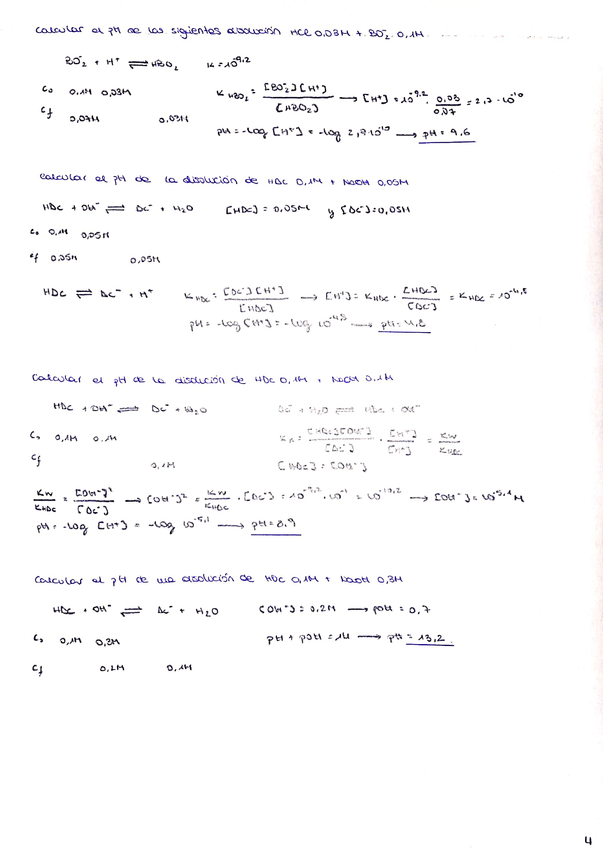 Calcular el pH de las sigientes disolución HCl 0,03M + BO₂⁻ 0,1M.
BO₂⁻ + H⁺ ⇌ HBO₂ K = 10^9,2
C₀ 0,1M 0,03M K HBO₂ = [BO₂⁻][H⁺] / [HBO₂] → [H⁺] = 10^-9,2 · 0,03 / 0,07 = 2,7 · 10^-10
Cf 0,07M 0,03M
pH = -log [H⁺] = -log 2,7·10^-10 → pH = 9,6
Calcular el pH de la disolución de HAc 0,1M + NaOH 0,05M
HAc + OH⁻ ⇌ Ac⁻ + H₂O [HAc] = 0,05M y [Ac⁻] = 0,05M
C₀ 0,1M 0,05M
Cf 0,05M 0,05M
HAc ⇌ Ac⁻ + H⁺ K HAc = [Ac⁻][H⁺] / [HAc] → [H⁺] = K HAc · [HAc] / [Ac⁻] = K HAc = 10^-4,8
pH = -log [H⁺] = -log 10^-4,8 → pH = 4,8
Calcular el pH de la disolución de HAc 0,1M + NaOH 0,1M
HAc + OH⁻ ⇌ Ac⁻ + H₂O Ac⁻ + H₂O ⇌ HAc + OH⁻
C₀ 0,1M 0,1M [HAc][OH⁻] / [Ac⁻] · [H⁺] / [H⁺] = Kw / K HAc
Cf 0,1M [HAc] = [OH⁻]
Kw / K HAc = [OH⁻]² / [Ac⁻] → [OH⁻]² = Kw / K HAc · [Ac⁻] = 10^-9,2 · 10^-1 = 10^-10,2 → [OH⁻] = 10^-5,1 M
pH = -log [H⁺] = -log 10^-5,1 → pH = 8,9
Calcular el pH de una disolución de HAc 0,1M + NaOH 0,3M
HAc + OH⁻ ⇌ Ac⁻ + H₂O [OH⁻] = 0,2M → pOH = 0,7
C₀ 0,1M 0,3M pH + pOH = 14 → pH = 13,2.
Cf 0,2M 0,1M
4